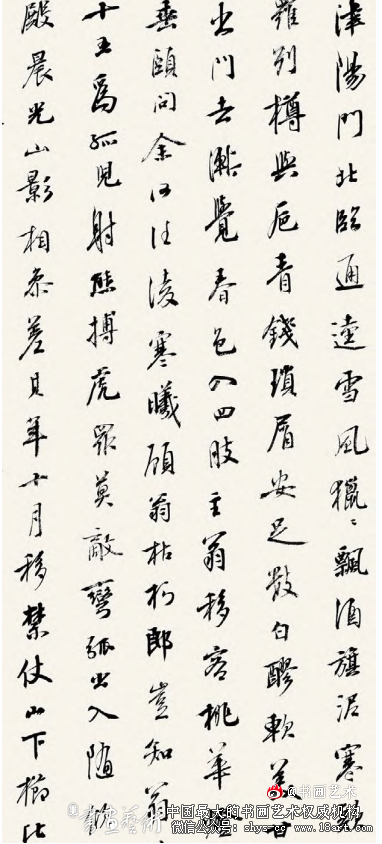 津陽門北臨通逵雪風獵〻飄酒旗泥寒
羅列樽與卮青錢瑣屑安足數白醪軟美甘
出門去漸覺春色入四肢主翁移客挑華燈
垂頤問余何往凌寒曦顧翁枯朽郎豈知翁
十五爲孤兒射熊搏虎眾莫敵彎弧出入隨佽
殿晨光山影相參差其年十月移禁仗山下櫛比
@书画艺术
書畫藝術
中国最大的书画艺术权威机构
微信公众号：shys--cc www.18art.com